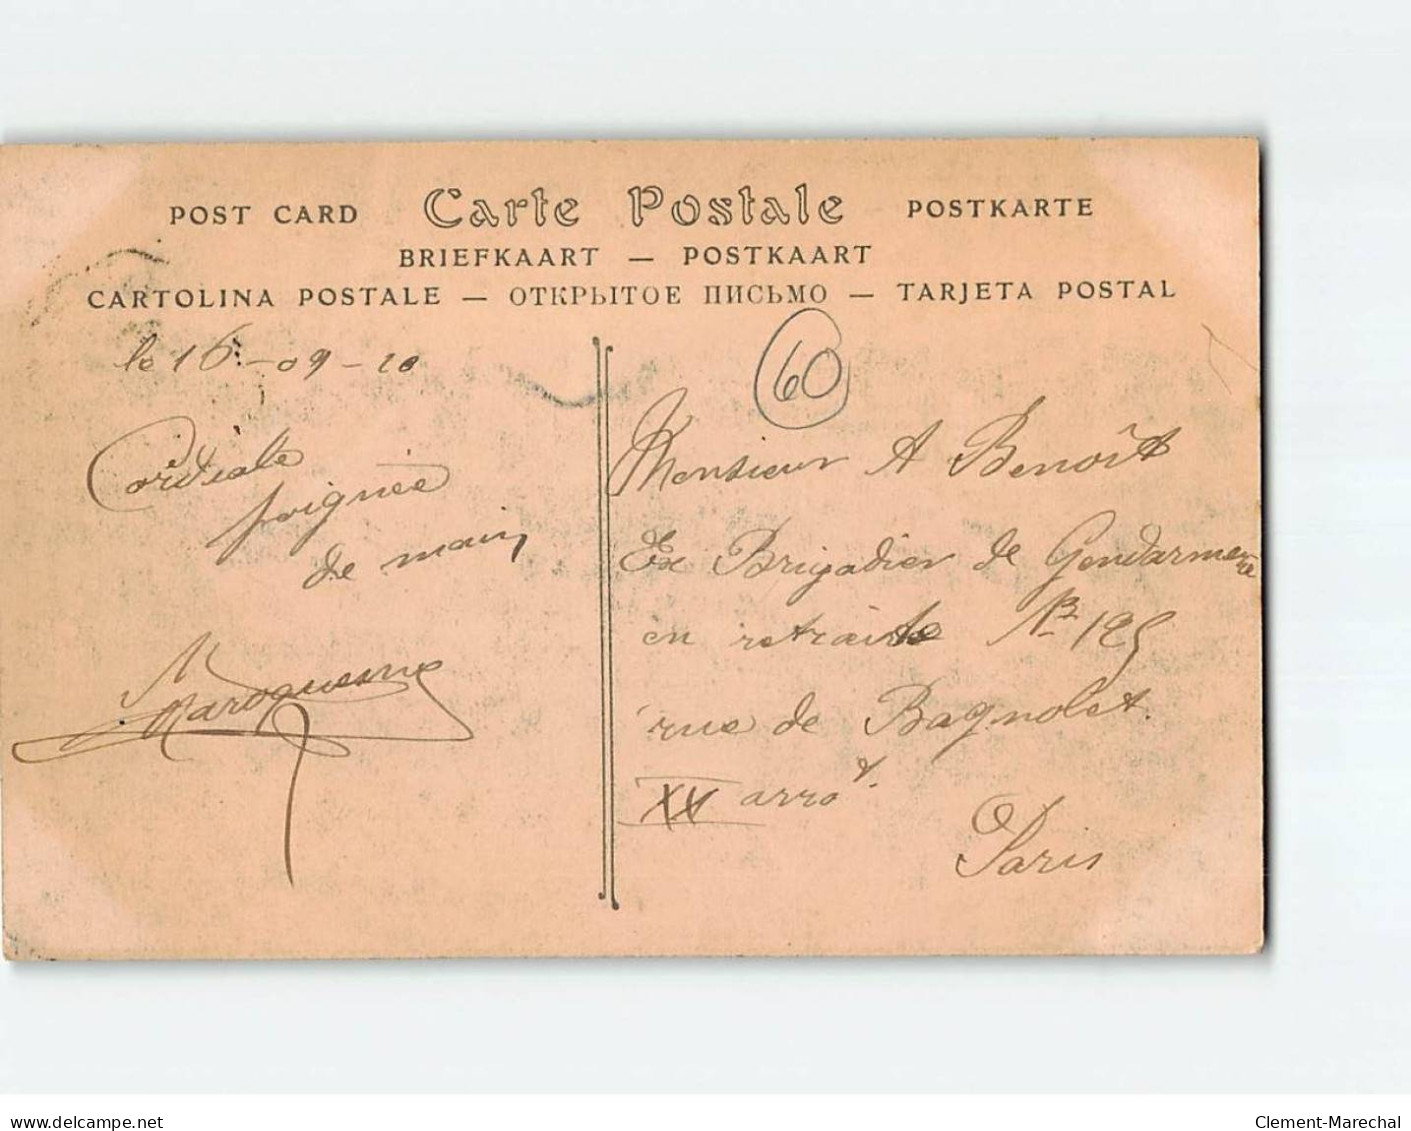 POST CARD Carte Postale POSTKARTE
BRIEFKAART — POSTKAART
CARTOLINA POSTALE — ОТКРЫТОЕ ПИСЬМО — TARJETA POSTAL
le 16-09-20
Cordiale
poignée
de main,
60
Monsieur A Benoît
Ex Brigadier de Gendarmerie
en retraite No 125
rue de Bagnolet.
XX arrot.
Paris
www.delcampe.net
Clement-Marechal